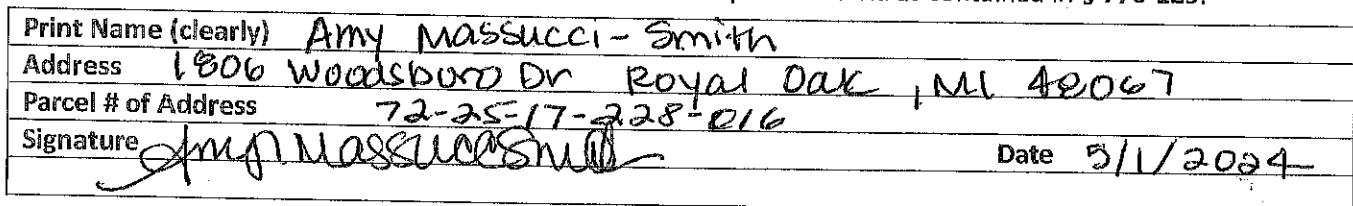 contained in § 770-125.
Print Name (clearly) Amy Massucci-Smith
Address 1806 Woodsboro Dr Royal Oak, MI 48067
Parcel # of Address 72-25-17-228-016
Signature Amy Massucci Smith Date 5/1/2024